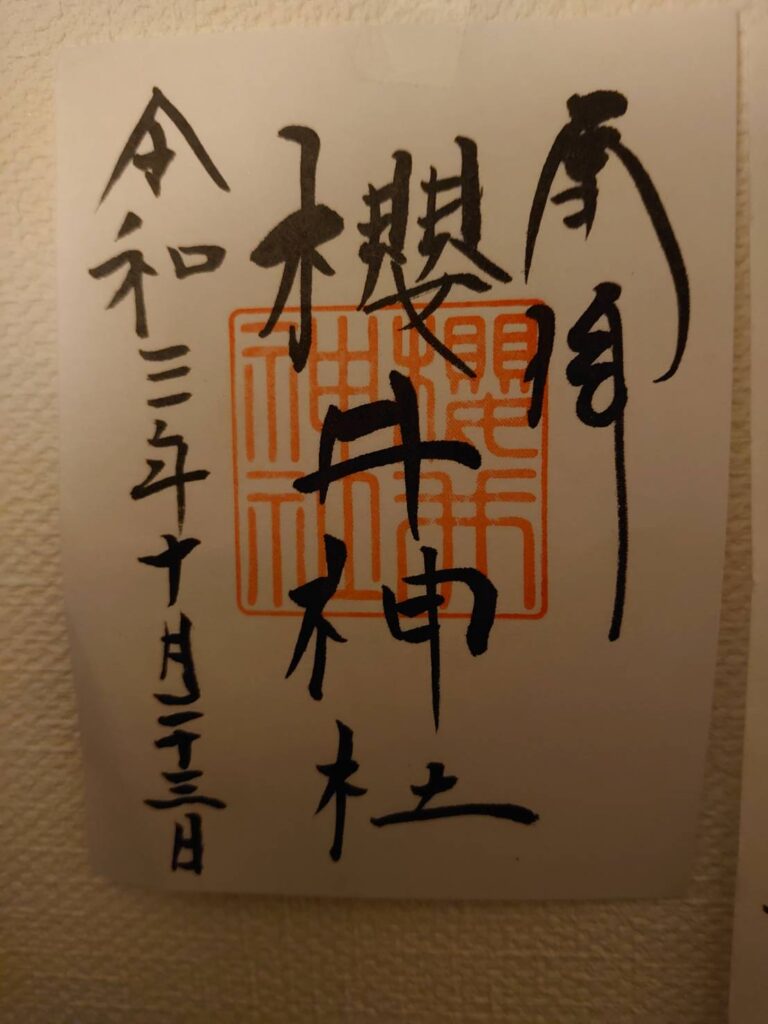 奉拝
櫻井神社
櫻井神社
令和三年十月二十三日